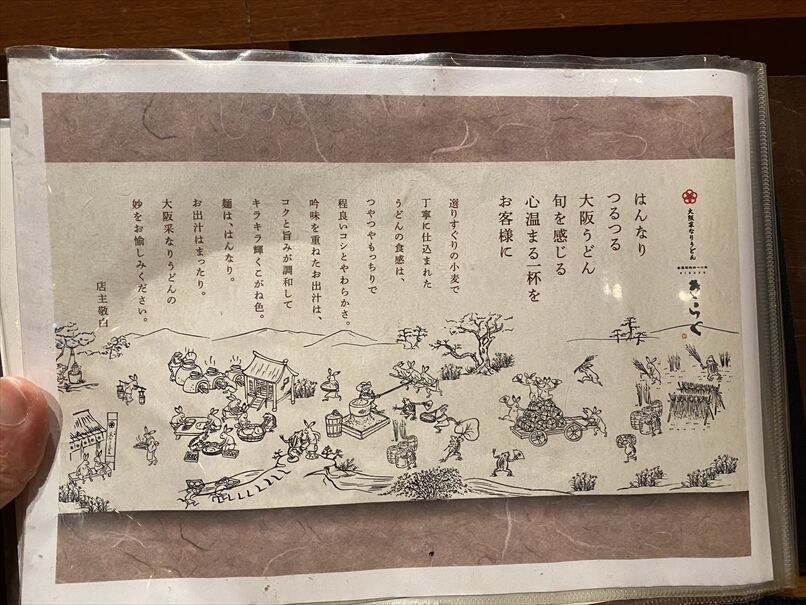 大阪采なりうどん
きらく
はんなり
つるつる
大阪うどん
旬を感じる
心温まる一杯を
お客様に
選りすぐりの小麦で
丁寧に仕込まれた
うどんの食感は、
つやつやもっちりで
程良いコシとやわらかさ。
吟味を重ねたお出汁は、
コクと旨みが調和して
キラキラ輝くこがね色。
麺は、はんなり。
お出汁はまったり。
大阪采なりうどんの
妙をお愉しみください。
店主敬白